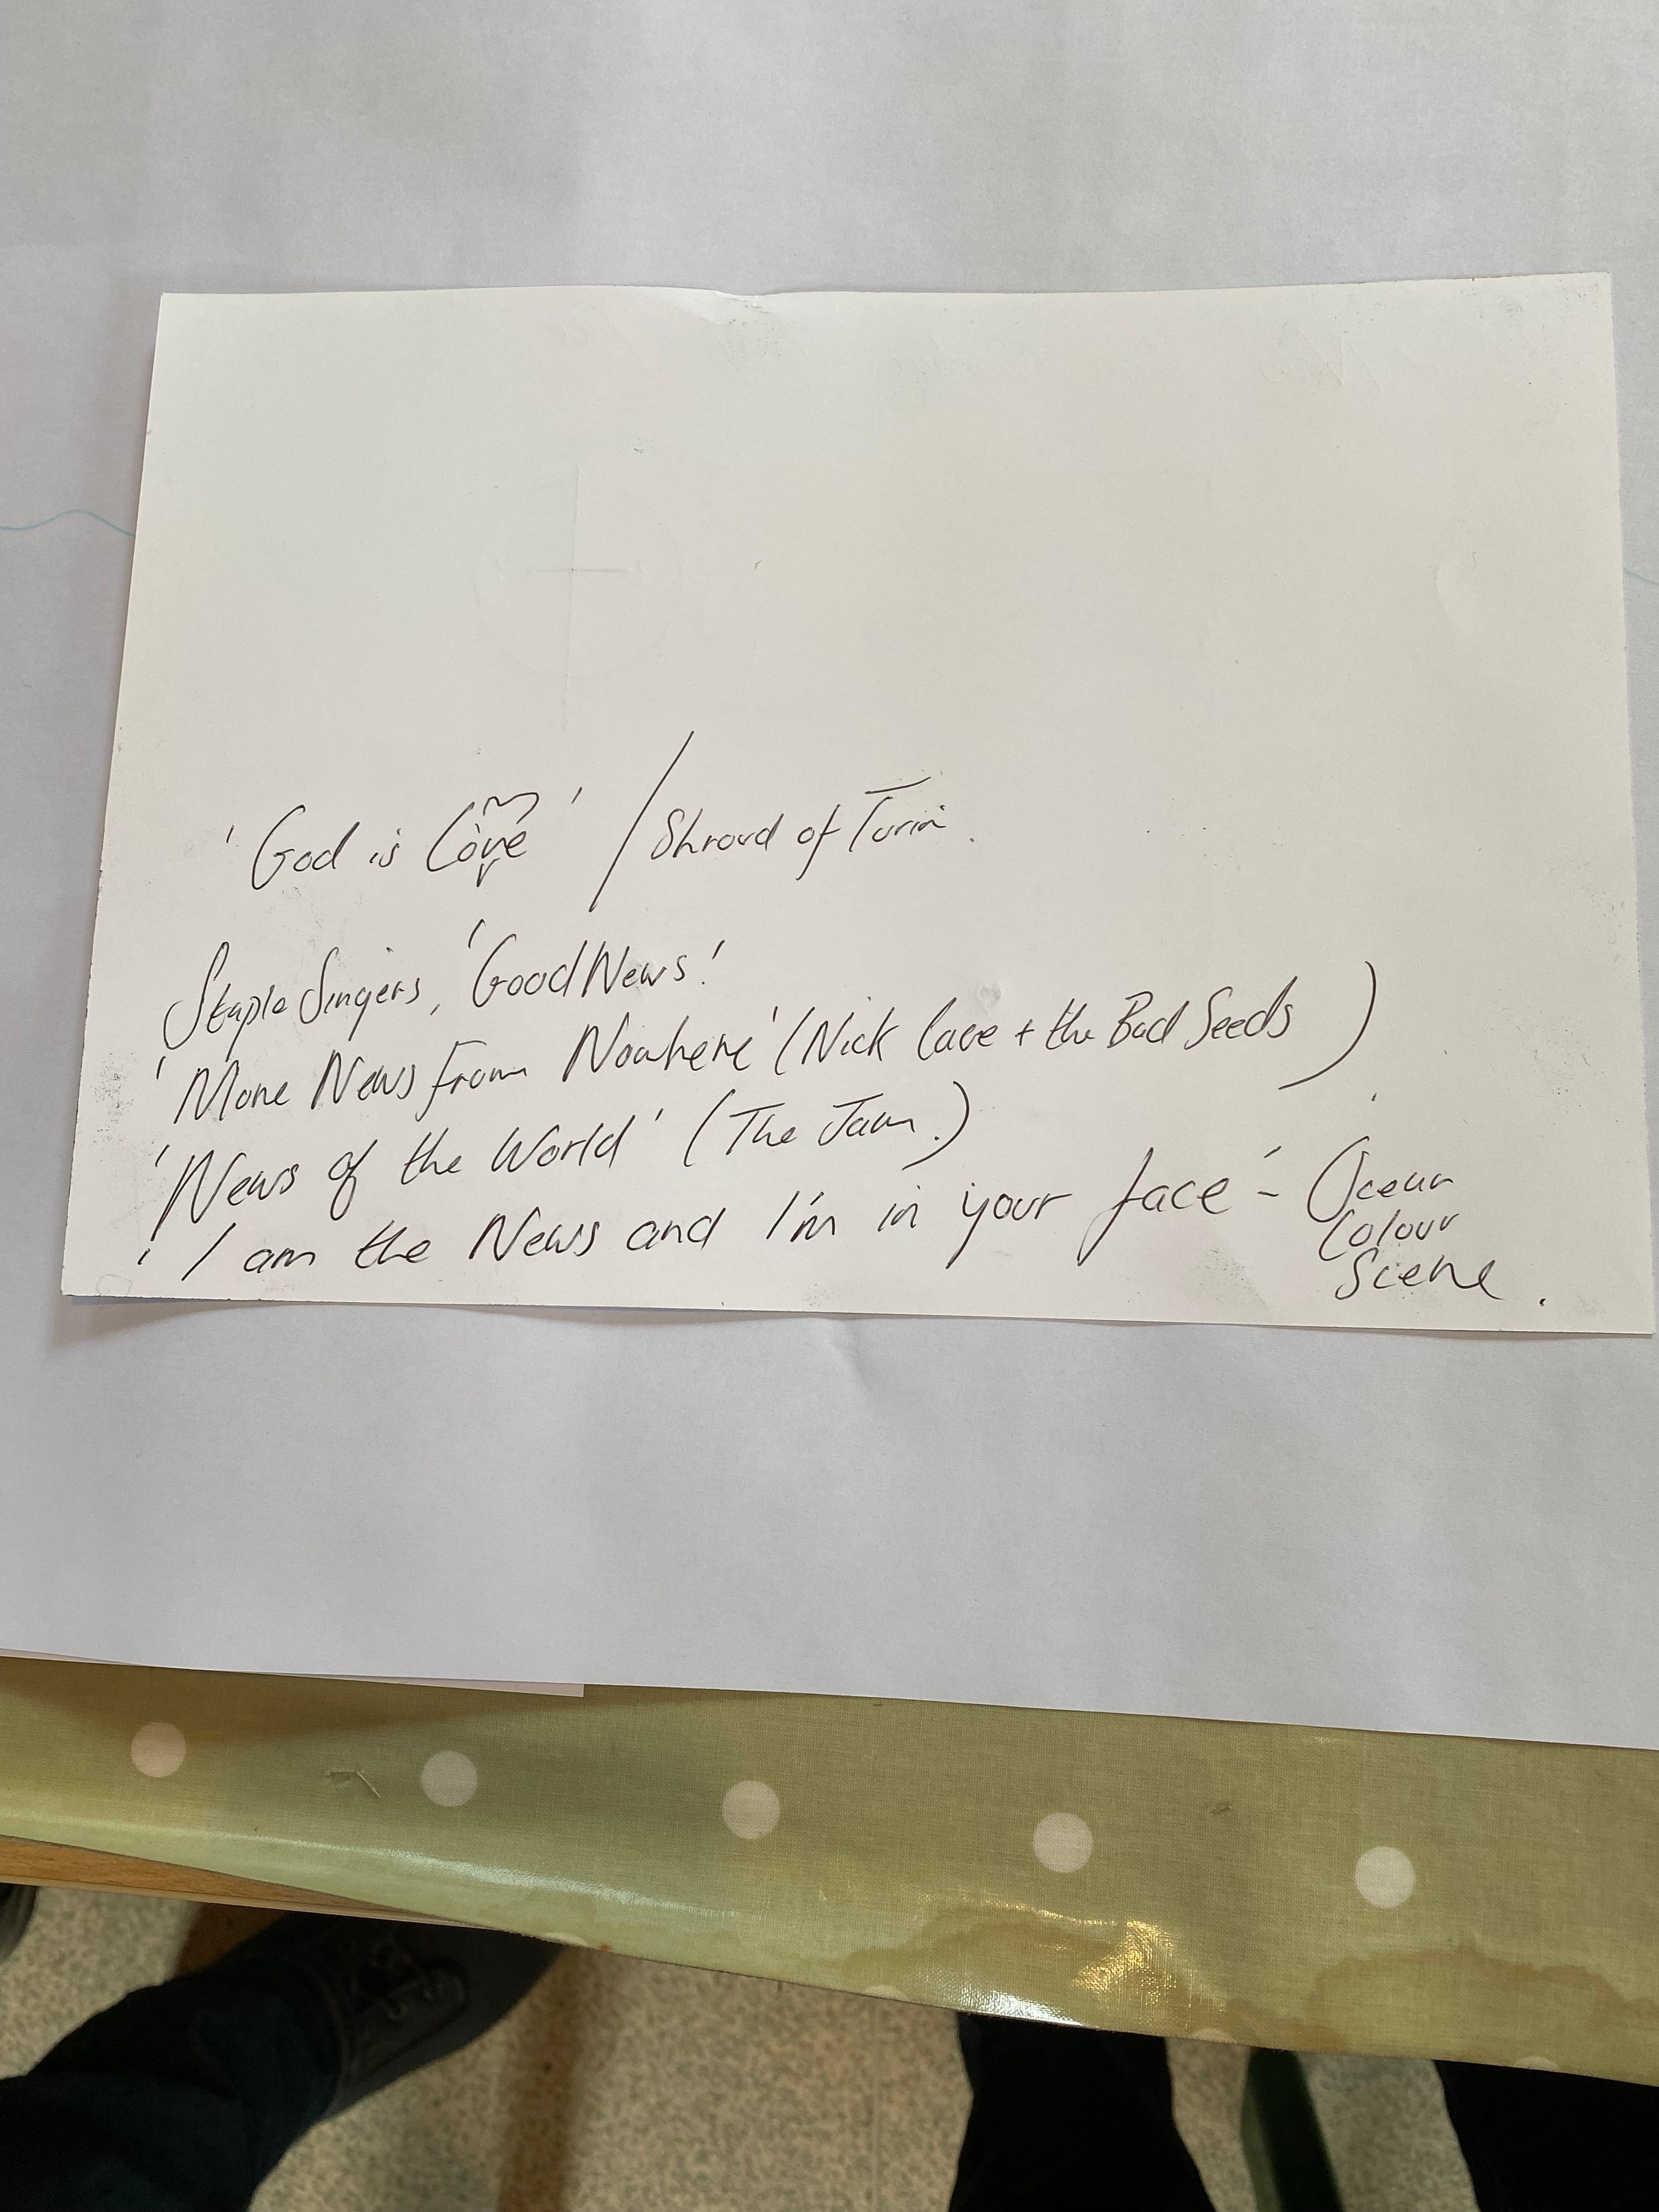 'God is Love' / Shroud of Turin.
Staple Singers, 'Good News!
'More News From Nowhere' (Nick Cave + the Bad Seeds)
'News of the World' (The Jam.)
'I am the News and I'm in your face' - Ocean
Colour
Scene.